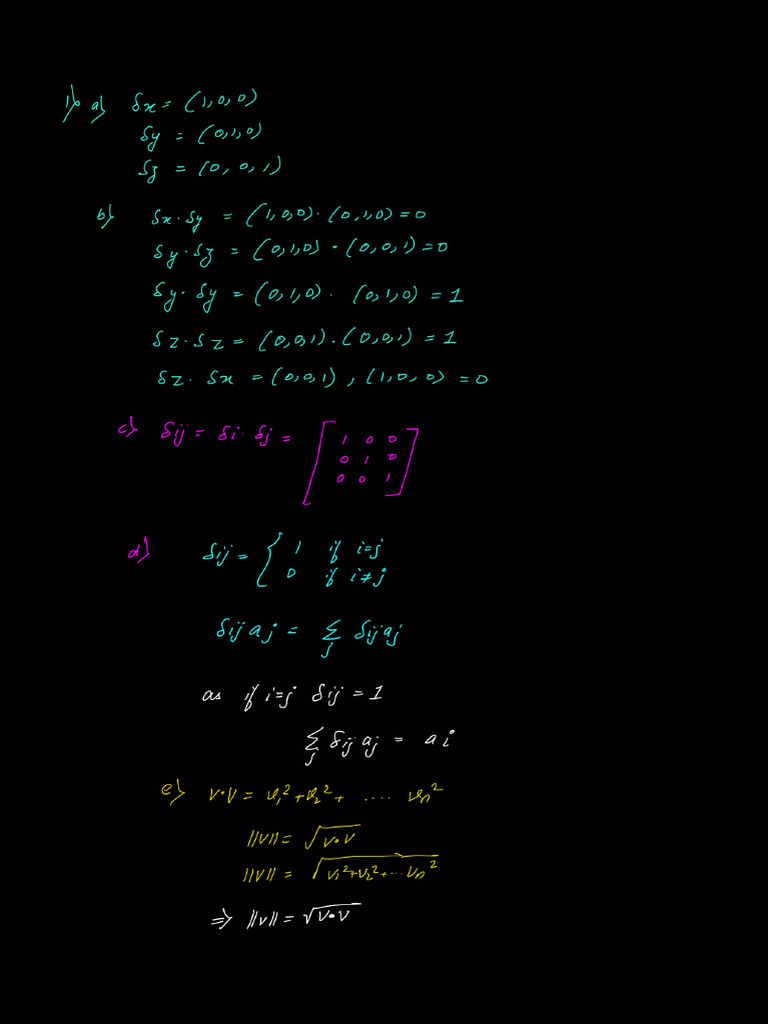 1) a) δx = (1,0,0)
δy = (0,1,0)
δz = (0, 0, 1)
b) δx·δy = (1,0,0)·(0,1,0)=0
δy·δz = (0,1,0) · (0,0,1)=0
δy· δy = (0,1,0)· (0,1,0) = 1
δz·δz = (0,0,1)·(0,0,1) = 1
δz· δx = (0,0,1) , (1,0,0) = 0
c) δij = δi· δj = [1 0 0
0 1 0
0 0 1]
d) δij = { 1 if i=j
0 if i≠j
δij aj = Σj δij aj
as if i=j δij = 1
Σj δij aj = ai
e) V·V = v₁²+v₂²+ .... vn²
||V|| = √V·V
||V|| = √v₁²+v₂²+...vn²
⇒ ||v|| = √V·V